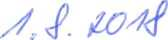 1. 8. 2018